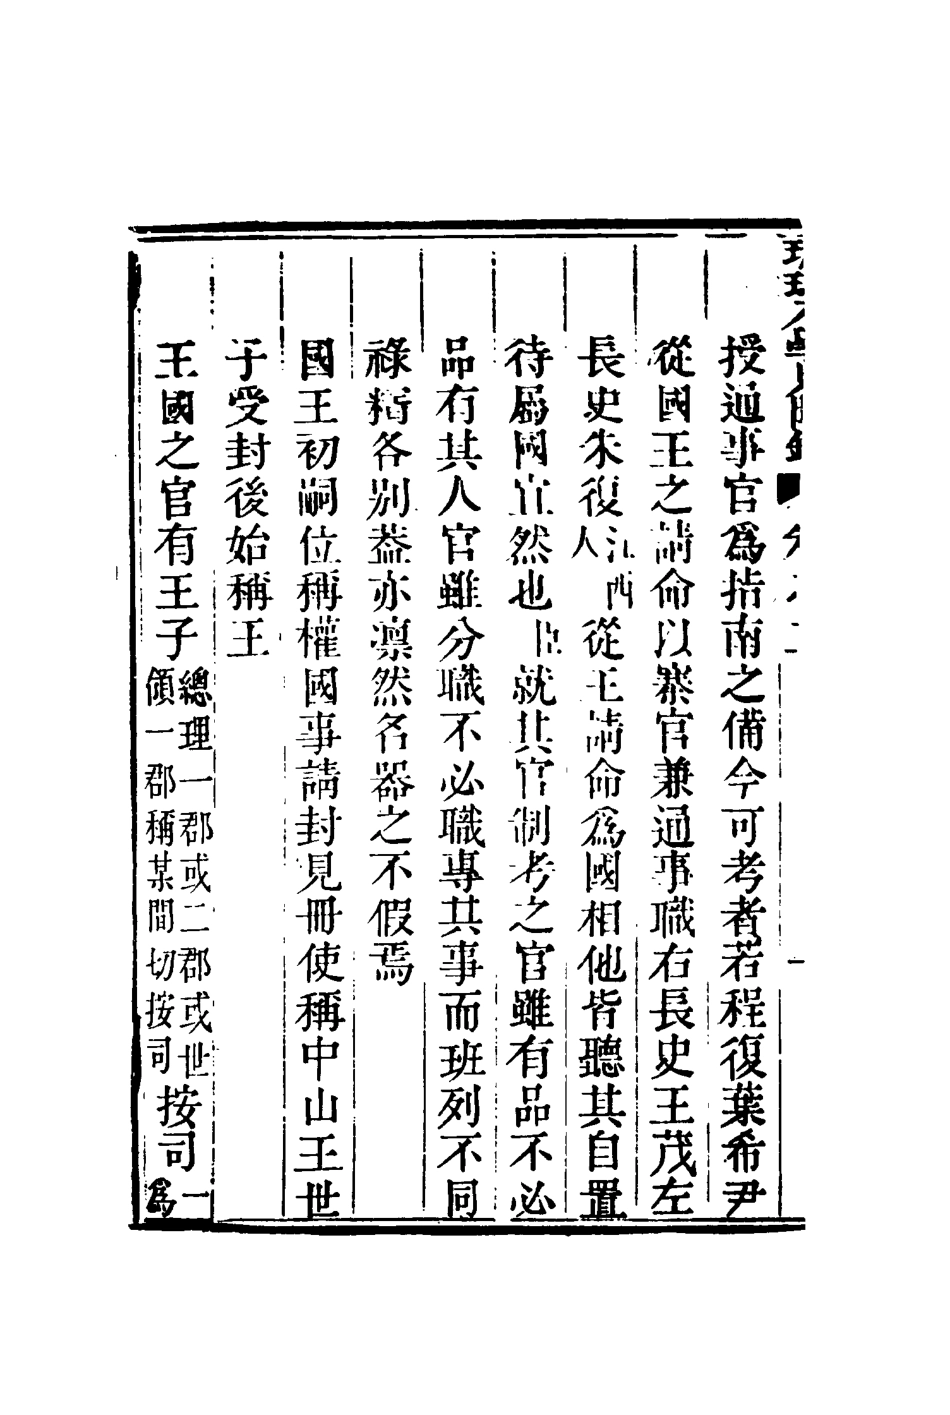 授通事官爲指南之備今可考者若程復葉希尹
從國王之請命以寨官兼通事職右長史王茂左
長史朱復江西人從王請命爲國相他皆聽其自置
待屬國宜然也臣就其官制考之官雖有品不必
品有其人官雖分職不必職專其事而班列不同
祿糈各別葢亦凛然名器之不假焉
國王初嗣位稱權國事請封見冊使稱中山王世
子受封後始稱王
王國之官有王子總理一郡或二郡或世領一郡稱某間切按司按司一爲